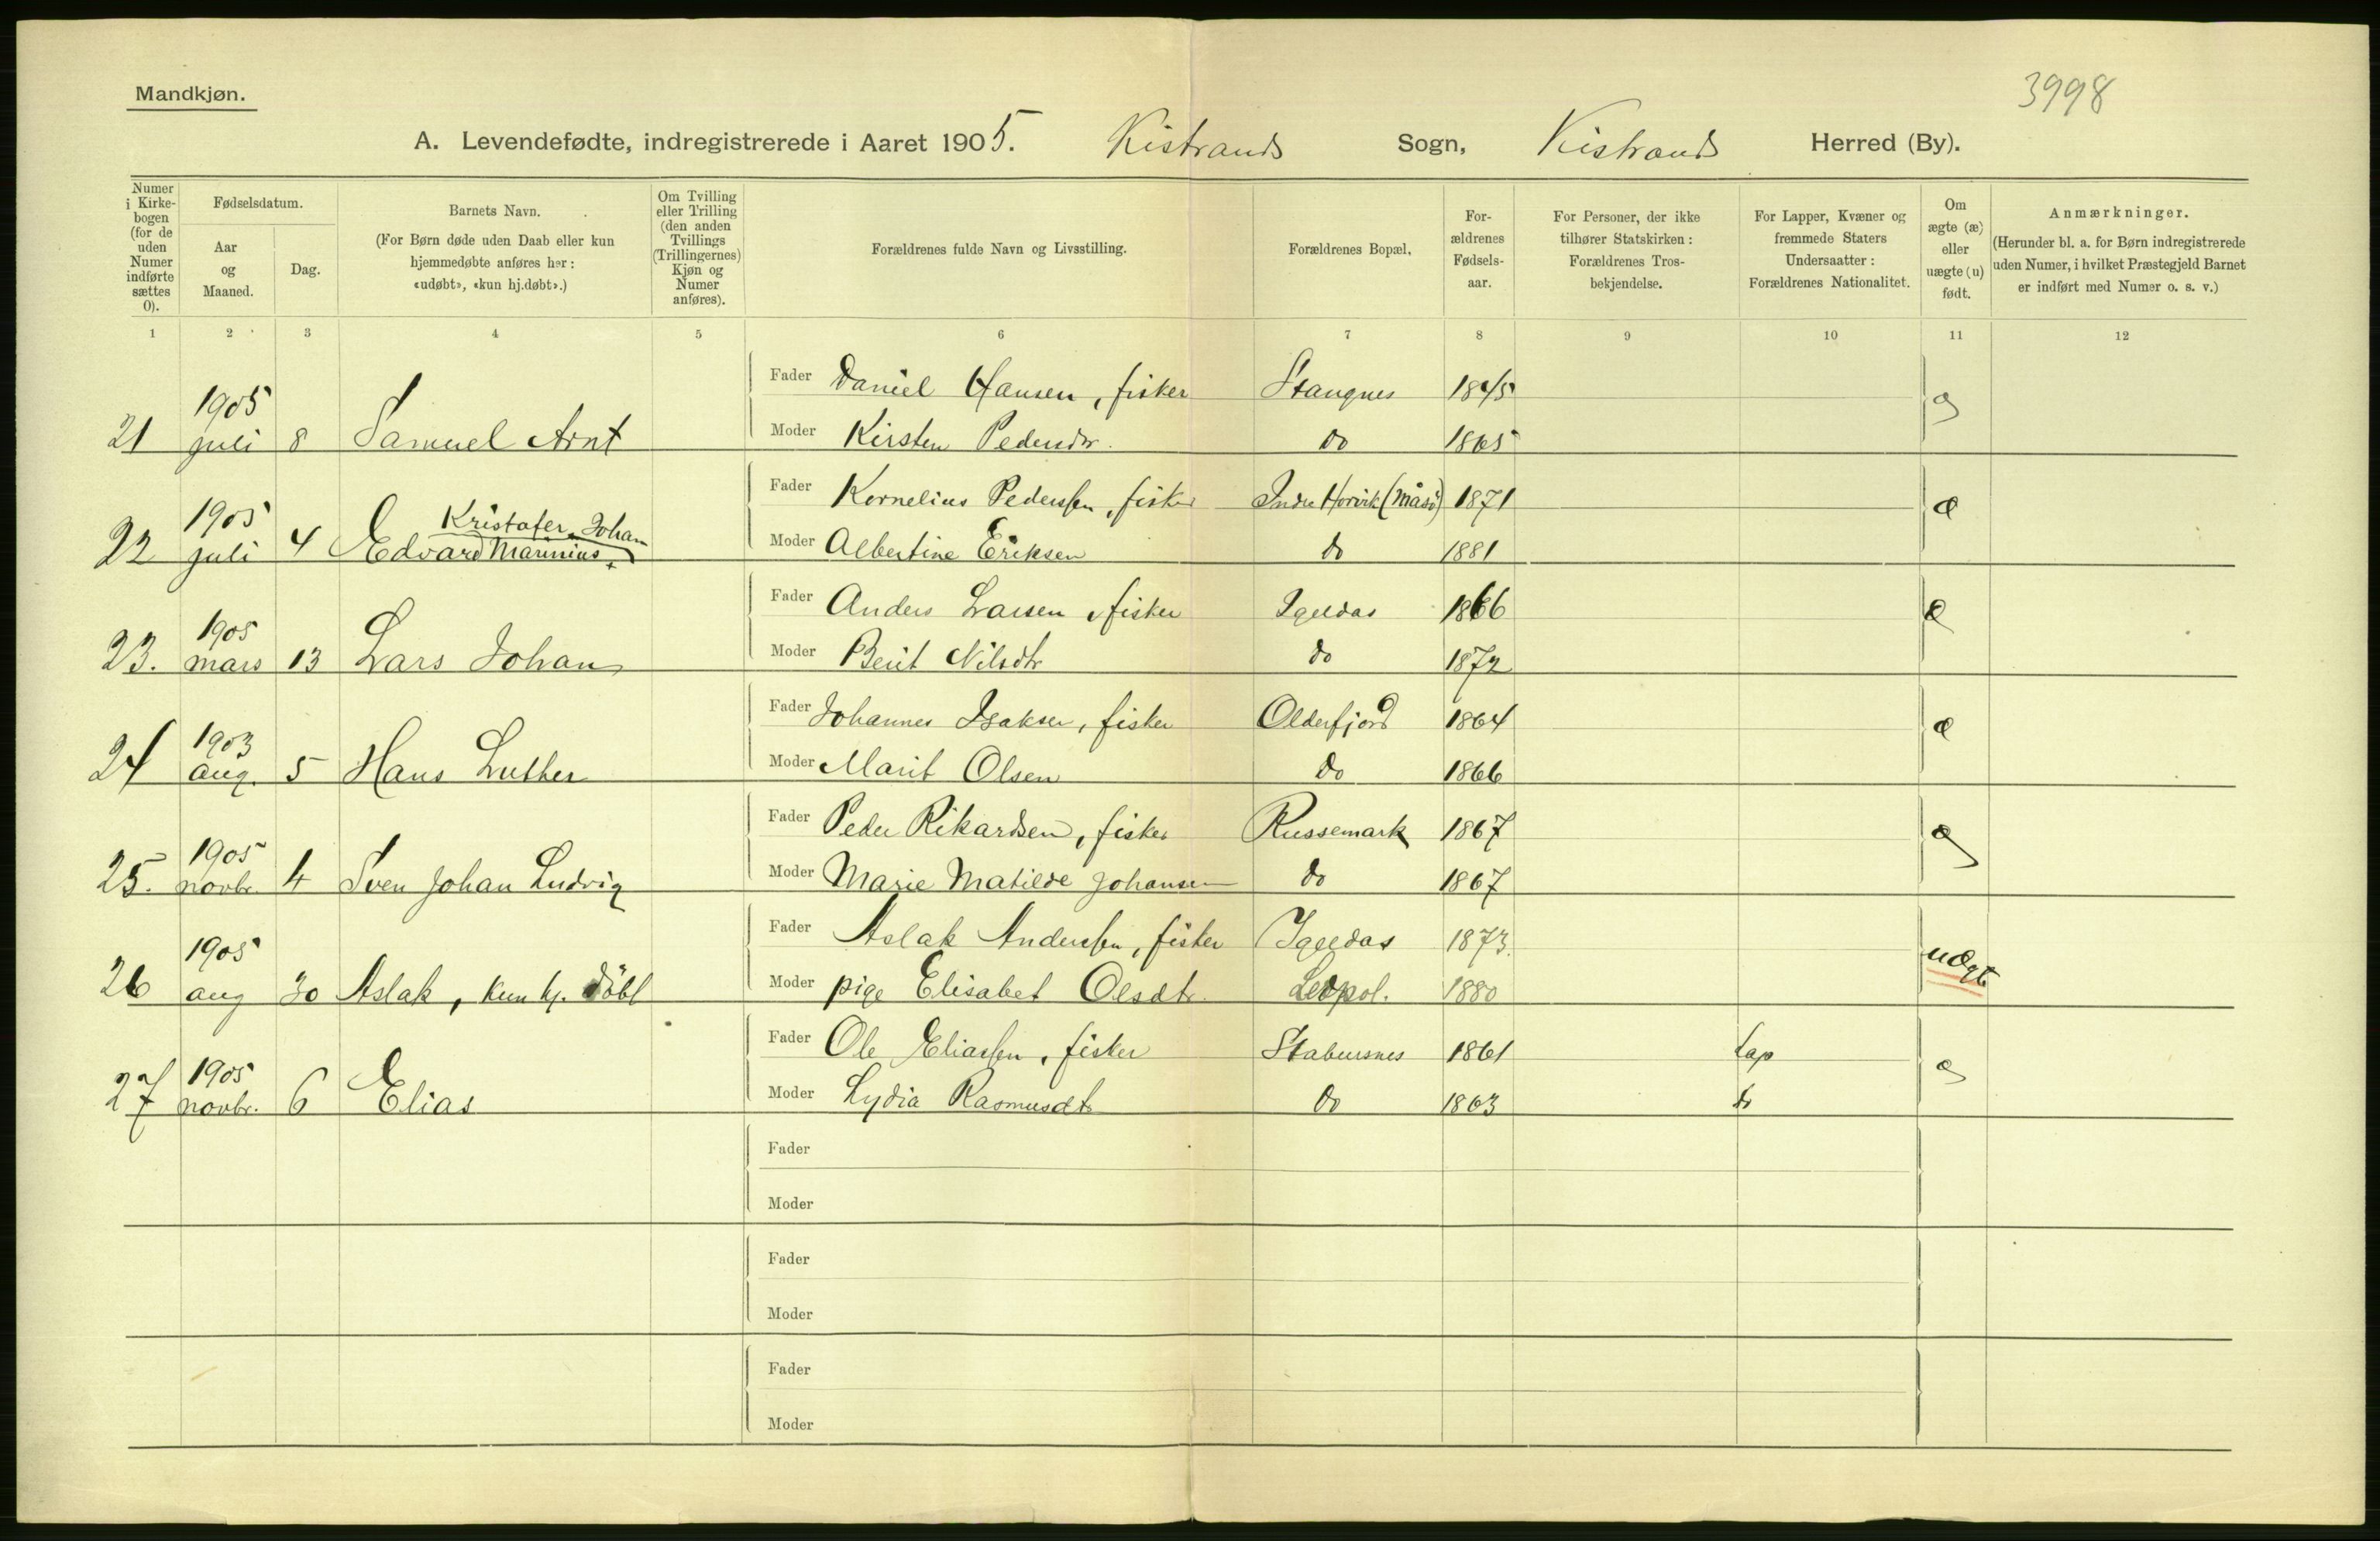 Mandkjøn.
3998
A. Levendefødte, indregistrerede i Aaret 1905. Kistrands Sogn, Kistrands Herred (By).
Numer i Kirkebogen (for de uden Numer indførte sættes 0).
Fødselsdatum.
Aar og Maaned.
Dag.
Barnets Navn.
(For Børn døde uden Daab eller kun hjemmedøbte anføres her: «udøbt», «kun hj.døbt».)
Om Tvilling eller Trilling (den anden Tvillings (Trillingernes) Kjøn og Numer anføres).
Forældrenes fulde Navn og Livsstilling.
Forældrenes Bopæl.
Forældrenes Fødselsaar.
For Personer, der ikke tilhører Statskirken: Forældrenes Trosbekjendelse.
For Lapper, Kvæner og fremmede Staters Undersaatter: Forældrenes Nationalitet.
Om ægte (æ) eller uægte (u) født.
Anmærkninger.
(Herunder bl. a. for Børn indregistrerede uden Numer, i hvilket Præstegjeld Barnet er indført med Numer o. s. v.)
1 2 3 4 5 6 7 8 9 10 11 12
Fader Daniel Hansen, fisker Stangnes 1845 æ
21 1905 juli 8 Samuel Arnt Moder Kirsten Pedersdr. do 1865
Fader Kornelius Pederssen, fisker Indre (Måsö) 1871 æ
22 1905 juli 4 Edvard Marinius Kristofer Johan Moder Albertine Eriksen do 1881
Fader Anders Larsen, fisker Igeldas 1866 æ
23. 1905 mars 13 Lars Johan Moder Berit Nilsdtr do 1872
Fader Johannes Isaksen, fisker Olderfjord 1864 æ
24 1903 aug. 5 Hans Luther Moder Marit Olsen do 1866
Fader Peder Rikardsen, fisker Russemark 1867 æ
25. 1905 novbr. 4 Sven Johan Ludvig Moder Marie Matilde Johansen do 1867
Fader Aslak Anderssen, fisker Igeldas 1873. uægte
26 1905 aug 30 Aslak, kun hj. döbt Moder pige Elisabet Olsdtr. Leopol. 1880
Fader Ole Eliassen, fisker Stabursnes 1861 lap æ
27 1905 novbr. 6 Elias Moder Lydia Rasmusdtr do 1863 do
Fader
Moder
Fader
Moder
Fader
Moder